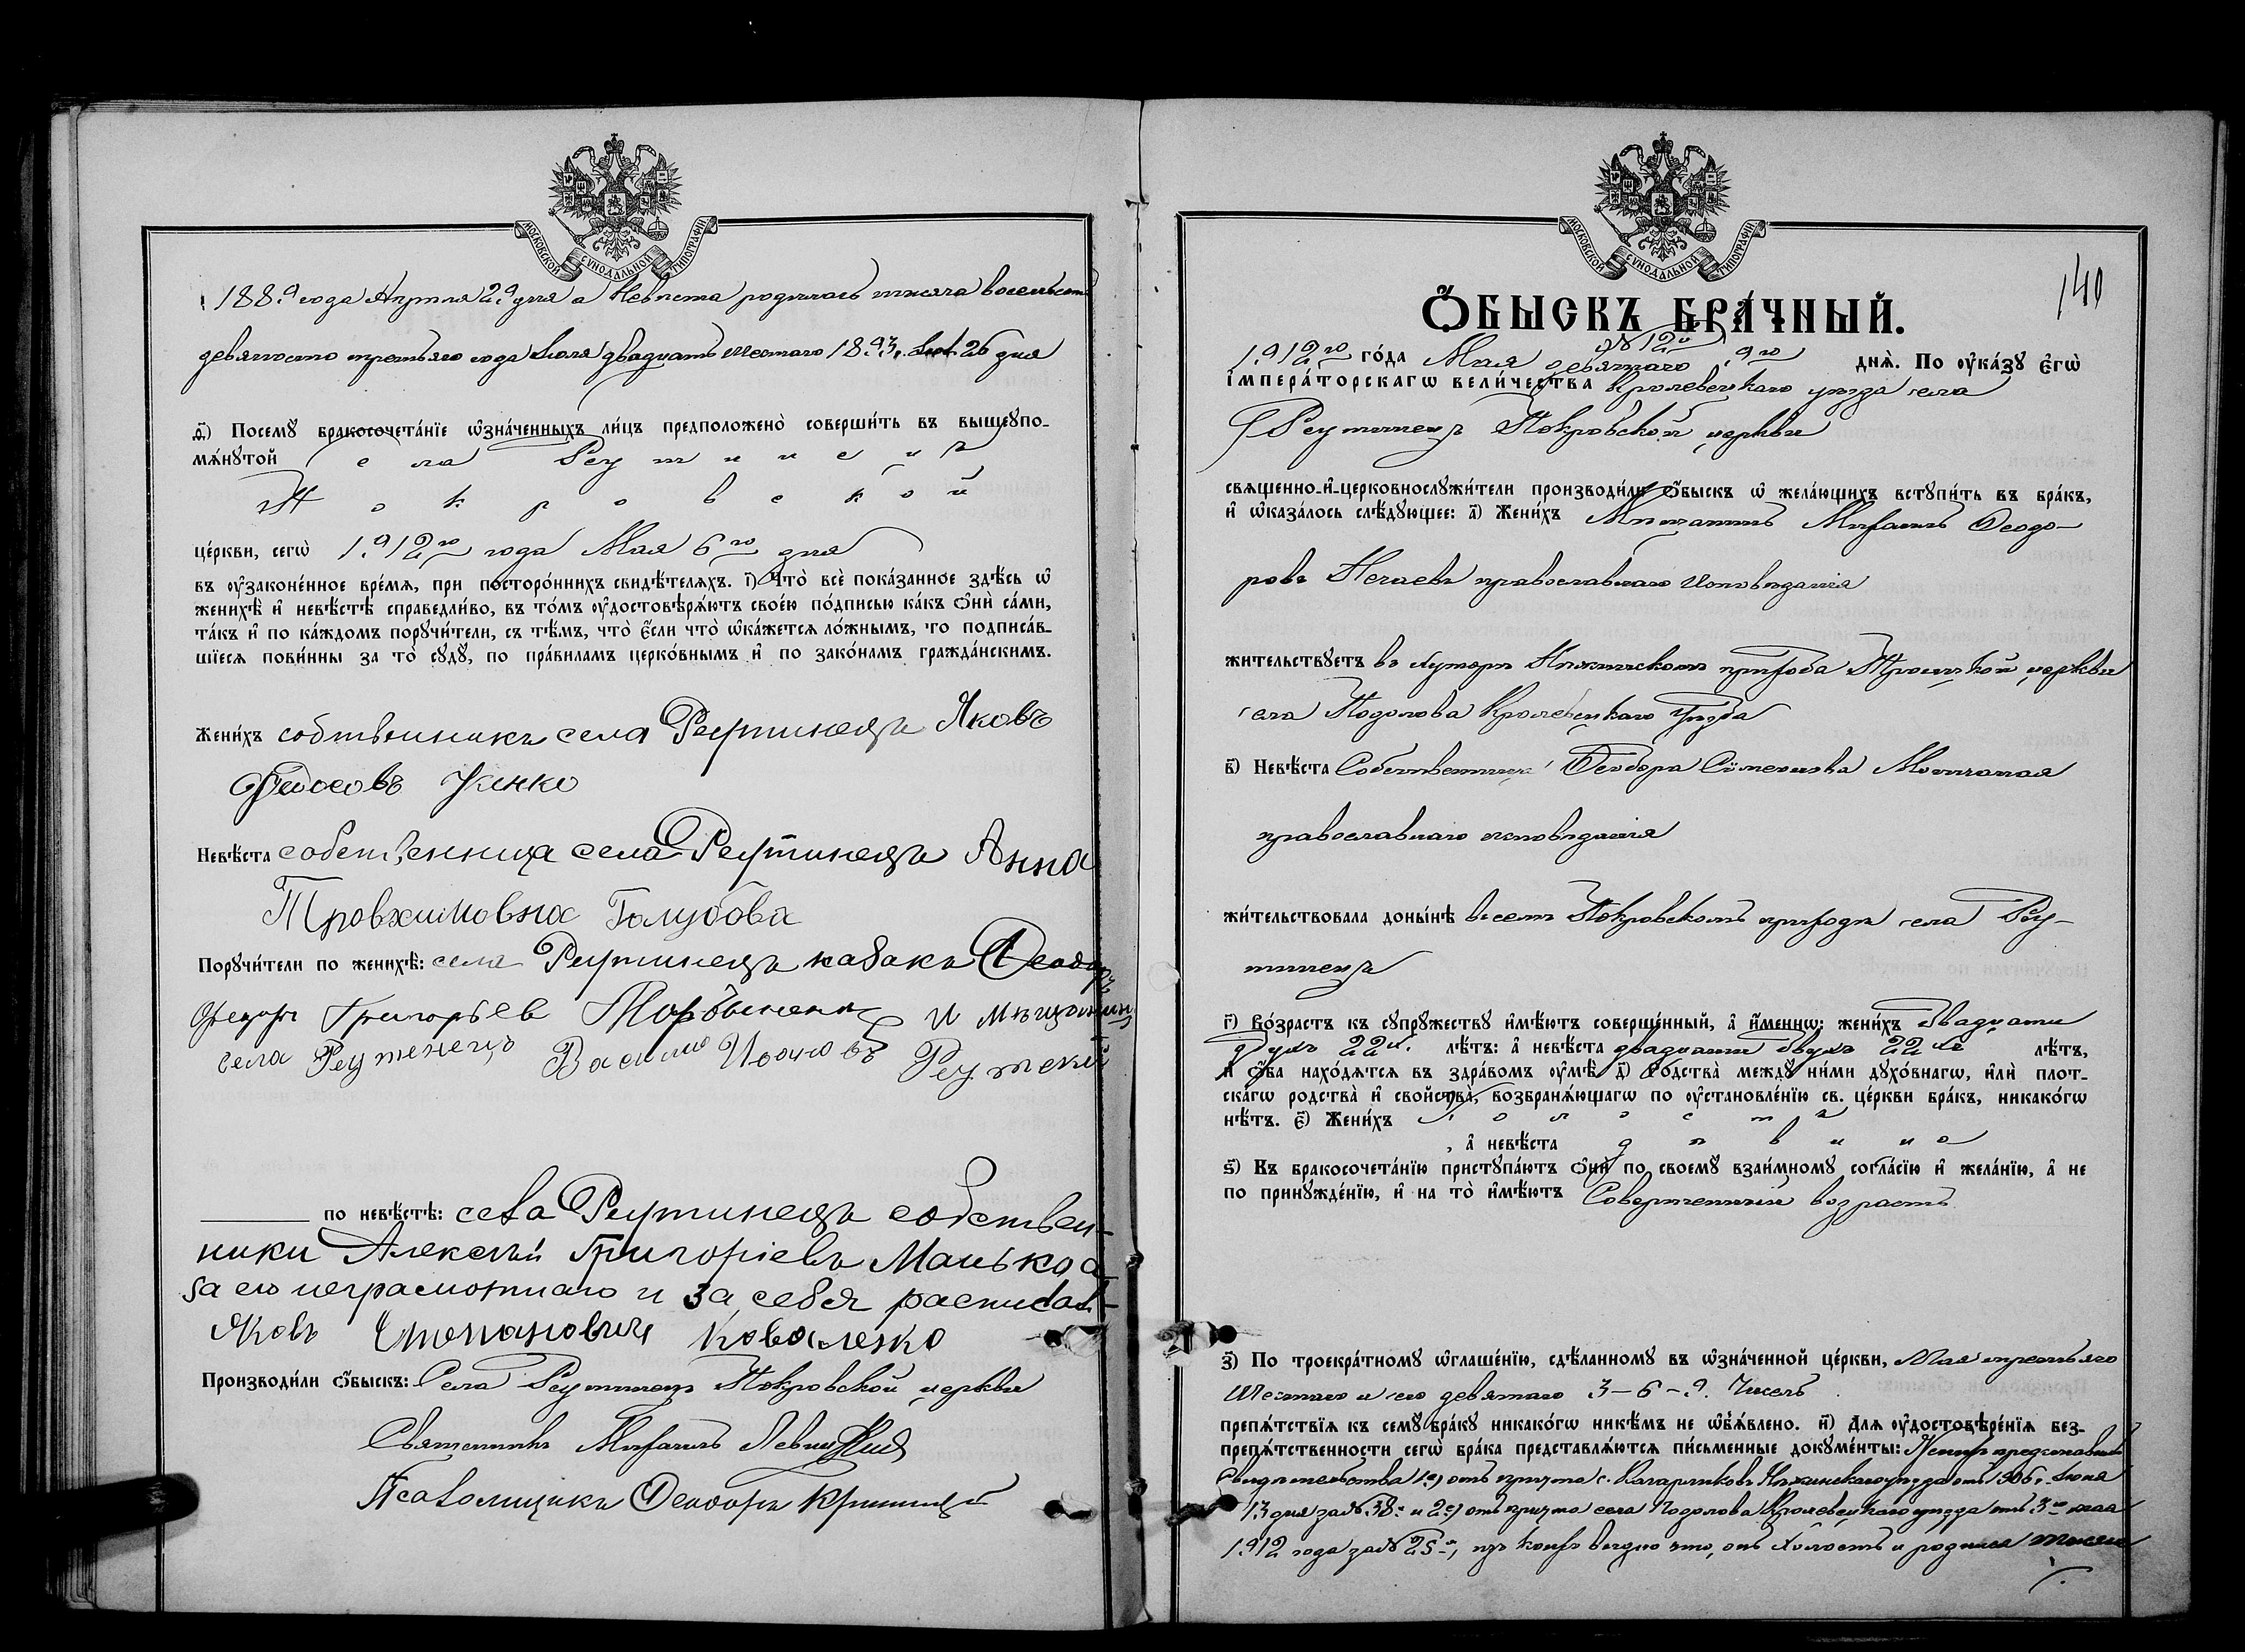 МОСКОВСКОЙ СѴНОДАЛЬНОЙ ТИПОГРАФІИ
1889 года Апрѣля 29 дня а Невѣста родилась тысяча восемьсот
девяносто третьяго года Іюля двадцать шестаго 1893 г. Іюл. 26 дня
д҃і) Посемꙋ бракосочета́нїе ѡ҆зна́ченныхъ ли́цъ предположено̀ соверши́ть въ вышеꙋпо-
мѧ́нꙋтой села Реутинецъ
Покровской
це́ркви, сегѡ̀ 1912го года Мая 6го дня
въ ᲂу҆законе́нное вре́мѧ, при посторо́ннихъ свидѣ́телѧхъ. і҃) Что̀ всѐ пока́занное здѣ́сь ѡ҆
женихѣ̀ и҆ невѣ́стѣ справедли́во, въ то́мъ ᲂу҆достовѣрѧ́ютъ свое́ю по́дписью ка́къ ѻ҆нѝ са́ми,
та́къ и҆ по ка́ждомъ порꙋчи́тели, съ тѣ́мъ, что̀ є҆́сли что̀ ѡ҆ка́жетсѧ ло́жнымъ, то подписа́в-
шїесѧ пови́нны за то̀ сꙋдꙋ̀, по пра́виламъ церко́внымъ и҆ по зако́намъ гражда́нскимъ.
Жени́хъ собтвенникъ села Реутинецъ Яковъ
Федосовъ
Невѣ́ста собственница села Реутинецъ Анна
Трофхимовна Голубова
Порꙋчи́тели по женихѣ̀: села Реутинецъ козакъ Ѳеодоръ
Федоръ Григорьев и мѣщонин
села Реутенецъ Василио Реутски
по невѣ́стѣ: села Реутинецъ собствен-
ники Алексѣй Григоріевъ Манько а
за его неграмотнаго и за себя расписал-
Яковъ Степановичъ Коваленко
Производи́ли ѻ҆́быскъ: Села Реутинецъ Покровской церкви
Священникъ Михаилъ Левицкій
Псаломщикъ Ѳеодоръ
МОСКОВСКОЙ СѴНОДАЛЬНОЙ ТИПОГРАФІИ
140
Ѻ҆́БЫСКЪ БРА́ЧНЫЙ.
№ 12й
1912го го́да Мая девятаго 9го днѧ̀. По ᲂу҆ка́зꙋ є҆гѡ̀
і҆мпера́торскагѡ вели́чества Кролевецкаго уѣзда села
Реутинецъ Покровской церкви
свѧщенно-и҆-церковнослꙋжи́тели производи́ли ѻ҆́быскъ ѡ҆ жела́ющихъ встꙋпи́ть въ бра́къ,
и҆ ѡ҆каза́лось слѣ́дꙋющее: а҃) Жени́хъ Мѣщанинъ Михаилъ Ѳеодо-
ровъ Нечаевъ православнаго исповѣданія
жи́тельствꙋетъ въ хуторѣ прихода Троицкой церкви
села Подолова Кролевецкаго уѣзда
в҃) Невѣ́ста Собственница Ѳеодора Симеонова
православнаго исповѣданія
жи́тельствовала доны́нѣ въ семъ Покровскомъ приходѣ села Реу-
тинецъ
г҃) Во́зрастъ къ сꙋпрꙋ́жествꙋ и҆мѣ́ютъ соверше́нный, а҆ и҆́меннѡ: жени́хъ двадцати
двухъ 22х. лѣ́тъ: а҆ невѣ́ста двадцати двухъ 22хъ лѣ́тъ,
и҆ ѻ҆́ба нахо́дѧтсѧ въ здра́вомъ ᲂу҆мѣ̀. д҃) Ро́дства̀ междꙋ̀ ни́ми дꙋхо́внагѡ, и҆лѝ плот-
ска́гѡ родства̀ и҆ сво́йства̀, возбранѧ́ющагѡ по ᲂу҆становле́нїю св. це́ркви бра́къ, никако́гѡ
нѣ́тъ. є҃) Жени́хъ холостъ
, а҆ невѣ́ста дѣвица
ѕ҃) Къ бракосочета́нїю пристꙋпа́ютъ ѻ҆нѝ по своемꙋ̀ взаи́мномꙋ согла́сїю и҆ жела́нїю, а҆ не
по принꙋжде́нїю, и҆ на то̀ и҆мѣ́ютъ Совершенный возрастъ
з҃) По троекра́тномꙋ ѡ҆глаше́нїю, сдѣ́ланномꙋ въ ѡ҆зна́ченной це́ркви, Мая третьяго
шестаго и сего девятаго 3-6-9. Числъ
препѧ́тствїѧ къ семꙋ̀ бра́кꙋ никако́гѡ никѣ́мъ не ѡ҆б̾ѧ́влено. и҃) Длѧ ᲂу҆достовѣре́нїѧ без-
препѧ́тственности сегѡ̀ бра́ка представлѧ́ютсѧ пи́сьменные докꙋме́нты: Женихъ представилъ
Свидѣтельства 1е) отъ причта с. Нѣжинскаго уѣзда отъ 1906 г. Іюня
13 дня за № 38м и 2е) отъ причта села Подолова Кролевецкаго уѣзда отъ 3го мая
1912 года за № 25м, изъ коихъ видно что, онъ холостъ и родился тысяча